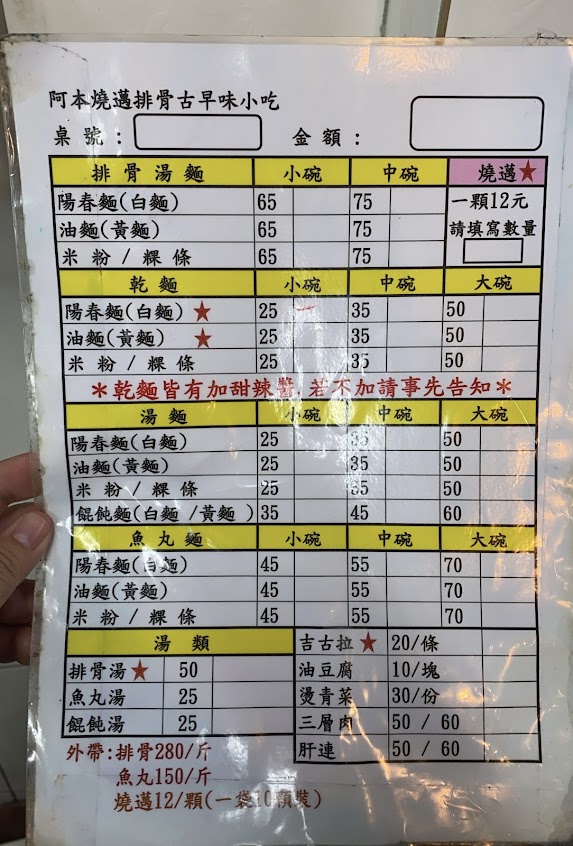 阿本燒邁排骨古早味小吃
桌號： 金額：
排骨湯麵 小碗 中碗 燒邁★
陽春麵(白麵) 65 75 一顆12元
油麵(黃麵) 65 75 請填寫數量
米粉/粿條 65 75
乾麵 小碗 中碗 大碗
陽春麵(白麵)★ 25 35 50
油麵(黃麵) ★ 25 35 50
米粉/粿條 25 35 50
＊乾麵皆有加甜辣醬,若不加請事先告知＊
湯麵 小碗 中碗 大碗
陽春麵(白麵) 25 35 50
油麵(黃麵) 25 35 50
米粉/粿條 25 35 50
餛飩麵(白麵/黃麵) 35 45 60
魚丸麵 小碗 中碗 大碗
陽春麵(白麵) 45 55 70
油麵(黃麵) 45 55 70
米粉/粿條 45 55 70
湯類
排骨湯★ 50
魚丸湯 25
餛飩湯 25
吉古拉★ 20/條
油豆腐 10/塊
燙青菜 30/份
三層肉 50 / 60
肝連 50 / 60
外帶:排骨280/斤
魚丸150/斤
燒邁12/顆(一袋10顆裝)